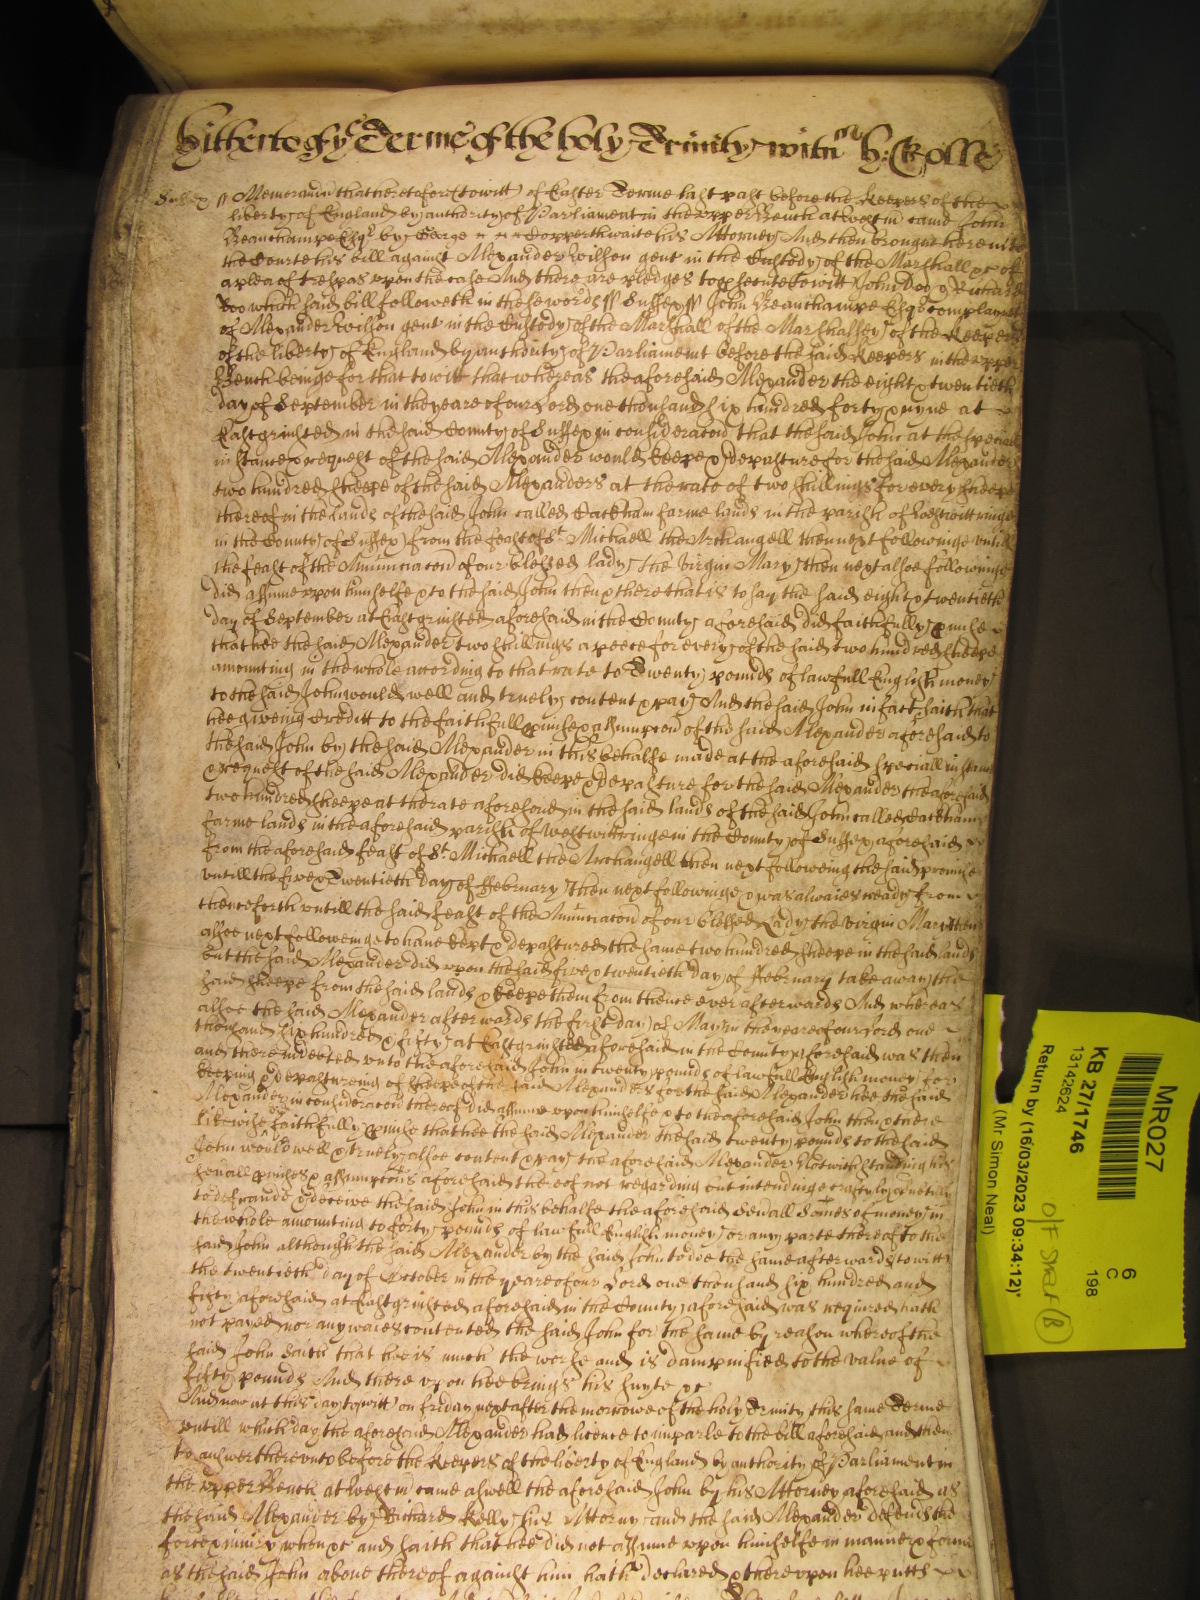 Hitherto of ye Terme of the holy Trinity witn H: Rolle
Sussex ss Memorand that heretofore (towitt) of Easter Terme last past before the Keepers of the
liberty of England by authority of Parliament in the upper Bench at Westm came John
Beauchampe Esqr by George Copperthwaite his Attorney And then brought here into
the Courte his bill against Alexander Willson gent in the Custody of the Marshall &c of
a plea of trespas upon the case And there are pledges to psecute towitt John Doo & Richard
Roo which said bill followeth in these words ss Sussex ss John Beauchampe Esqr complaineth
of Alexander Willson gent in the Custody of the Marshall of the Marshalsey of the Keepers
of the liberty of England by authority of Parliament before the said Keepers in the upper
Bench beinge for that towitt that whereas the aforesaid Alexander the eight & twentieth
day of September in the yeare of our Lord one thousand six hundred forty & nyne at
Eastgrinsted in the said County of Sussex in consideracon that the said John at the speciall
instance & request of the said Alexander would keepe & depasture for the said Alexander
two hundred sheepe of the said Alexanders at the rate of two shillings for every sheepe
thereof in the lands of the said John called Cackham farme lands in the parish of Westwittringe
in the County of Sussex from the feast of St Michaell the Archangell then next followinge untill
the feast of the Anunciacon of our blessed lady the Virgin Mary then next alsoe followinge
did assume upon himselfe & to the said John then & there that is to say the said eight & twentieth
day of September at Eastgrinsted aforesaid in the County aforesaid did faithfully pmise
that hee the said Alexander two shillings a peece for every of the said two hundred sheepe
amounting in the whole according to that rate to Twenty pounds of lawfull English money
to the said John would well and truely content & pay And the said John in fact saith that
hee giveing Creditt to the faithfull pmise & assumpcon of the said Alexander aforesaid to
the said John by the said Alexander in this behalfe made at the aforesaid speciall instance
& request of the said Alexander did keepe & depasture for the said Alexander the aforesaid
two hundred sheepe at the rate aforesaid in the said lands of the said John called Cackham
farme lands in the aforesaid parish of Westwittringe in the County of Sussex aforesaid
from the aforesaid feast of St Michaell the Archangell then next followeing the said promise
untill the five & Twentieth day of ffebruary then next followinge & was alwaies ready from
thenceforth untill the said feast of the Anunciacon of our blessed Lady the Virgin Mary then
alsoe next followeinge to have kept & depastured the same two hundred sheepe in the said lands
but the said Alexander did upon the said five & twentieth day of ffebruary take away the
said sheepe from the said lands & keepe them from thence ever afterwards And whereas
alsoe the said Alexander afterwards the first day of May in the yeare of our Lord one
thousand six hundred & fifty at Eastgrinsted aforesaid in the County aforesaid was then
and there indebted unto the aforesaid John in twenty pounds of lawfull English money for
keeping & depastureing of sheepe of the said Alexanders for the said Alexander hee the said
Alexander in consideracon thereof did assume upon himselfe & to the aforesaid John then & there
likewise faithfully pmise that hee the said Alexander the said twenty pounds to the said
John would well & truely alsoe content & pay the aforesaid Alexander Notwithstanding his
severall pmises & assumptions aforesaid thereof not regarding but intendinge craftily & deceitfully
to defraude & deceive the said John in this behalfe the aforesaid severall somes of money in
the whole amounting to forty pounds of lawfull English money or any parte thereof to the
said John although the said Alexander by the said John to doe the same afterwards towitt
the twentieth day of October in the yeare of our Lord one thousand six hundred and
fifty aforesaid at Eastgrinsted aforesaid in the County aforesaid was required hath
not payed nor any waies contented the said John for the same by reason whereof the
said John saith that hee is much the worse and is dampnified to the value of
fifty pounds And there upon hee brings his suyte &c
And now at this day towitt on friday next after the morrowe of the holy Trinity this same Terme
untill which day the aforesaid Alexander had licence to imparle to the bill aforesaid and then
to answer thereunto before the Keepers of the liberty of England by authority of Parliament in
the upper Bench at Westm came aswell the aforesaid John by his Attorney aforesaid as
the said Alexander by Richard Kelly his Attorny and the said Alexander defends the
force & iniury when &c and saith that hee did not assume upon himselfe in manner & forme
as the said John above thereof against him hath declared & thereupon hee putts
MR027
KB 27/1746
13142624
Return by (16/03/2023 09:34:12)
(Mr Simon Neal)
6
C
198
O/F SHELF (B)